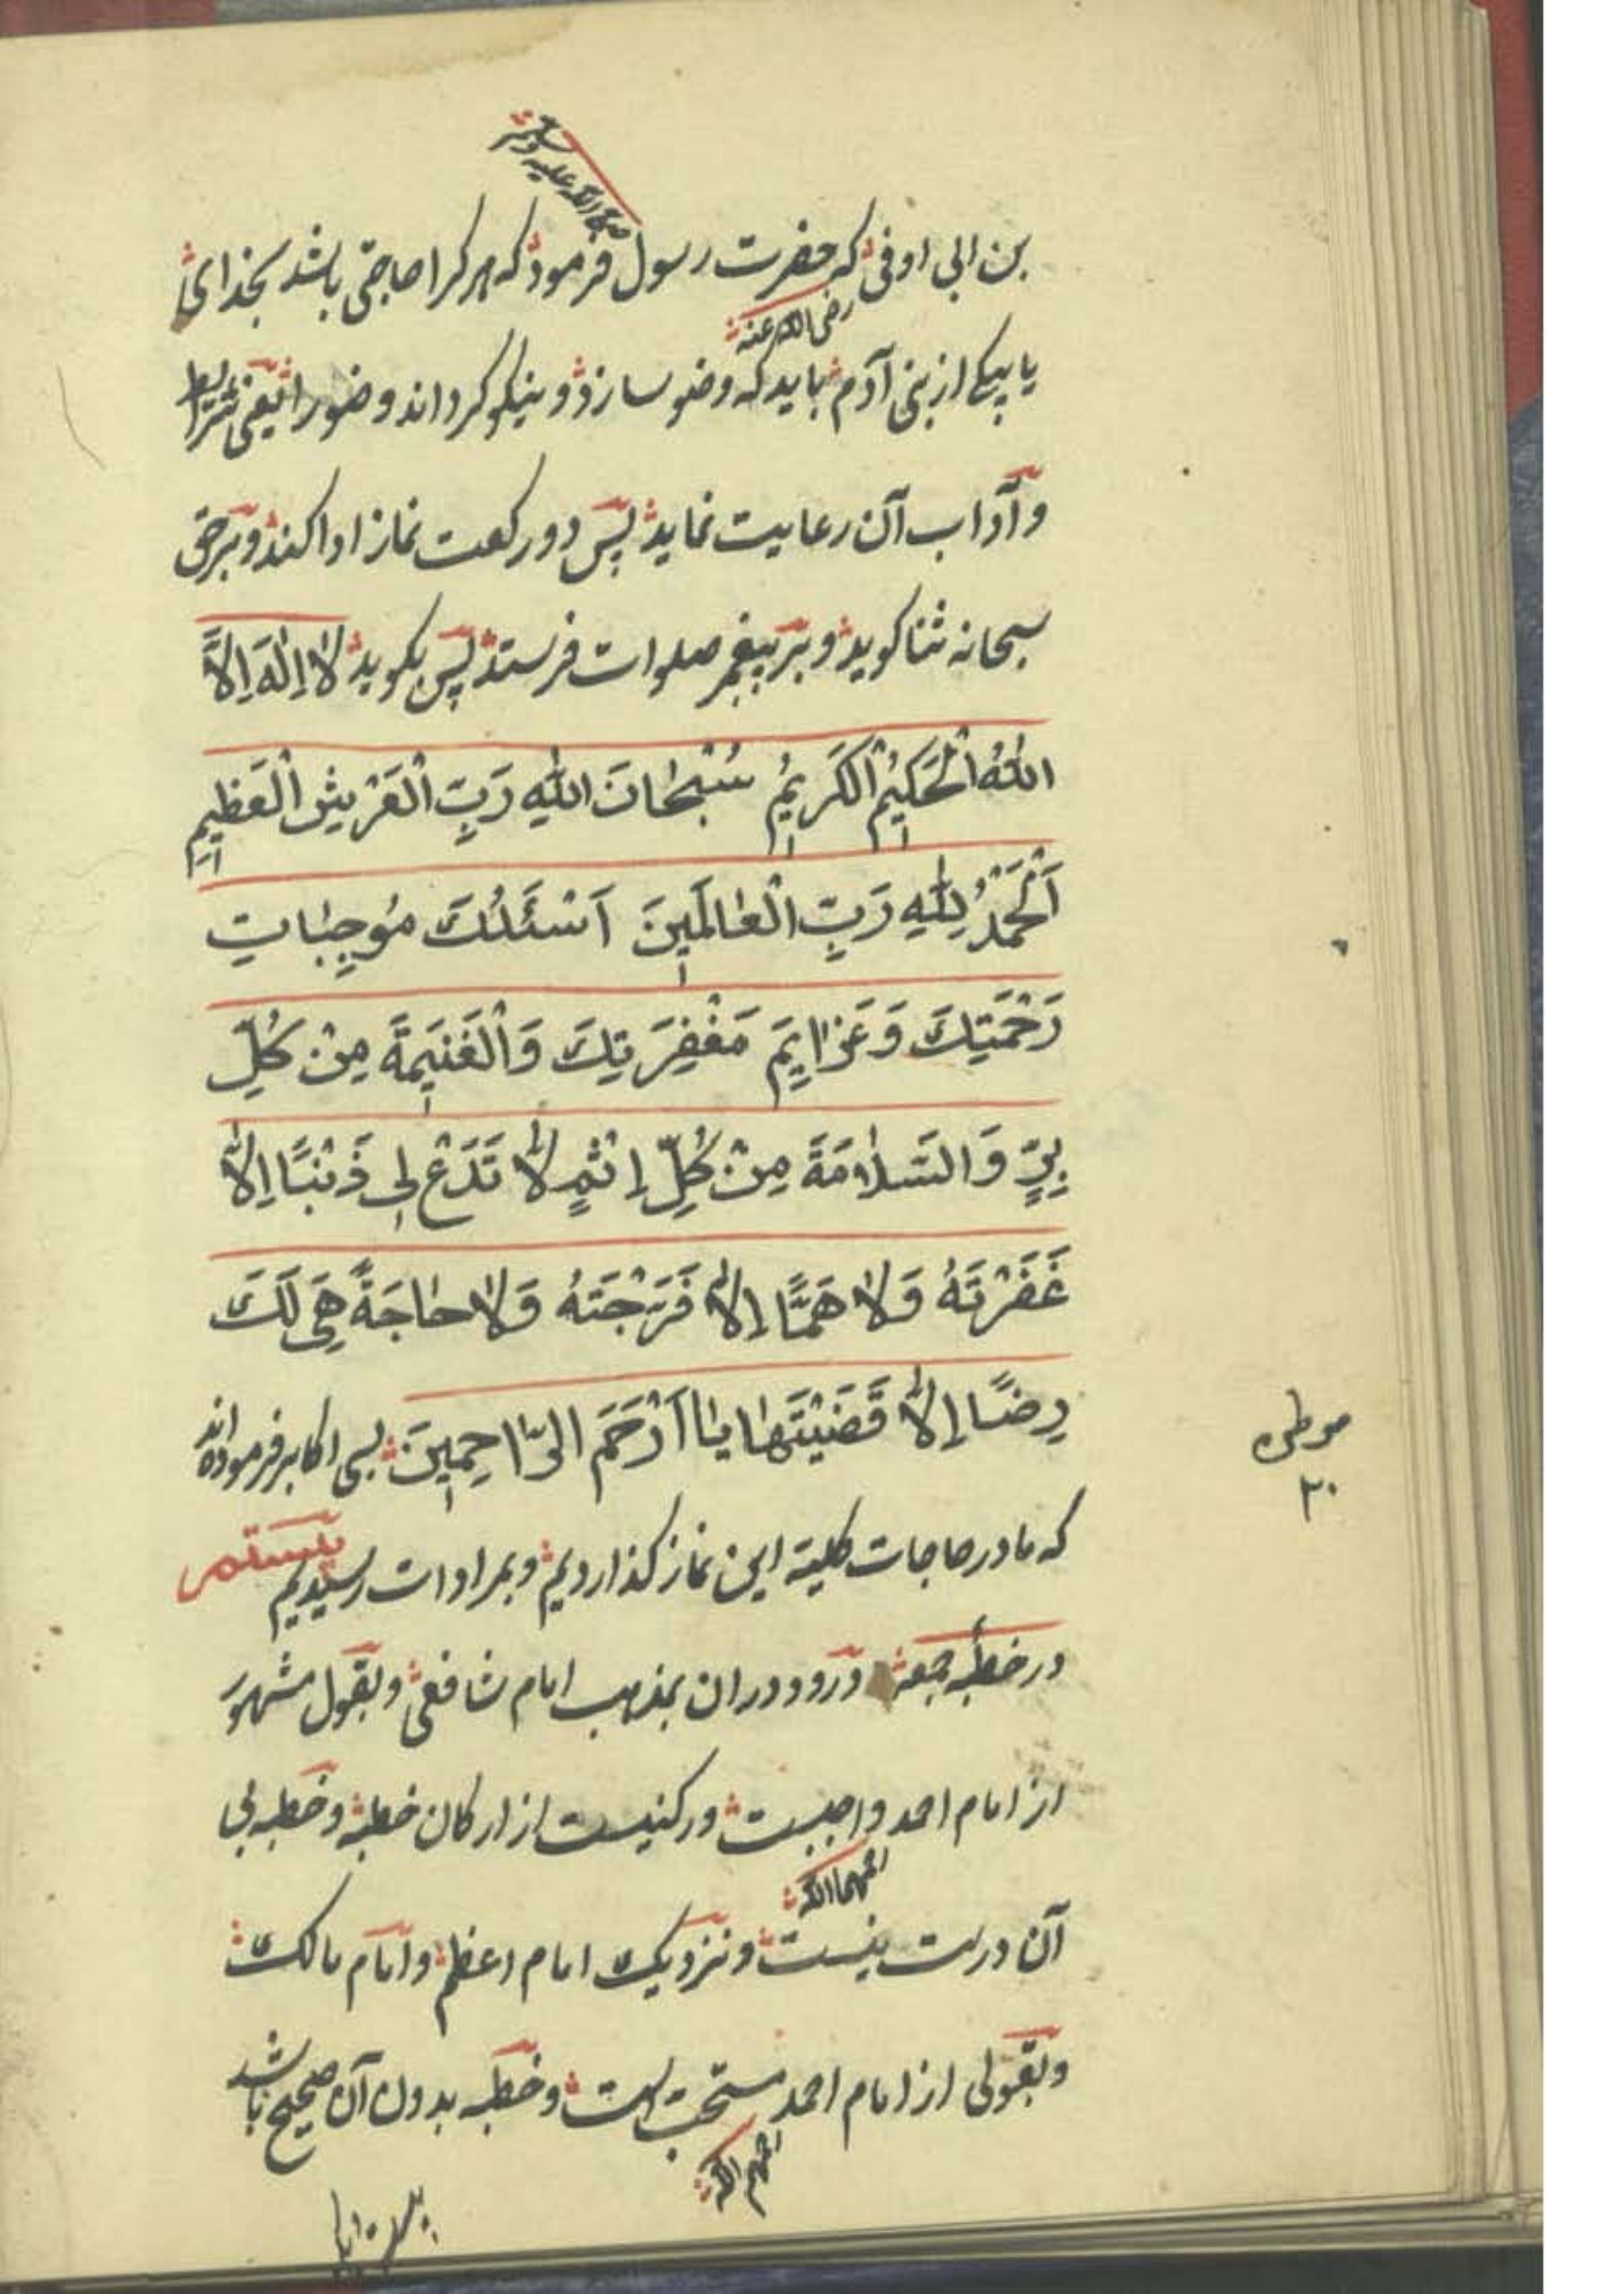 صلی الله علیه وسلم
بن ابی اوفی که حضرت رسول فرمود که هر کرا حاجتی باشد بخدای
رضی الله عنه
یا بیکی از بنی آدم باید که وضو سازد و نیکو کرداند وضو را یعنی شرایط
و آداب آن رعایت نماید پس دو رکعت نماز ادا کند و بر حق
سبحانه ثنا کوید و بر پیغمبر صلوات فرستد پس بکوید لَا اِلٰهَ اِلَّا
اللّٰهُ الْحَكِيْمُ الْكَرِيْمُ سُبْحَانَ اللّٰهِ رَبِّ الْعَرْشِ الْعَظِيْمِ
اَلْحَمْدُ لِلّٰهِ رَبِّ الْعَالَمِيْنَ اَسْئَلُكَ مُوجِبَاتِ
رَحْمَتِكَ وَعَزَايِمَ مَغْفِرَتِكَ وَالْغَنِيْمَةَ مِنْ كُلِّ
بِرٍّ وَالسَّلَامَةَ مِنْ كُلِّ اِثْمٍ لَا تَدَعْ لِي ذَنْبًا اِلَّا
غَفَرْتَهُ وَلَا هَمًّا اِلَّا فَرَّجْتَهُ وَلَا حَاجَةً هِيَ لَكَ
رِضًا اِلَّا قَضَيْتَهَا يَا اَرْحَمَ الرَّاحِمِيْنَ بسی اکابر فرموده‌اند
موطن
۲۰
که ما در حاجات کلیه این نماز کذاردیم و بمرادات رسیدیم بیستم
در خطبه جمعه و درود در ان بمذهب امام شافعی و بقول مشهور
از امام احمد واجبست و رکنیست از ارکان خطبه و خطبه بی
رحمهما الله
آن درست نیست و نزدیک امام اعظم و امام مالک
و بقولی از امام احمد مستحب است و خطبه بدون آن صحیح باشد
رحمهم الله